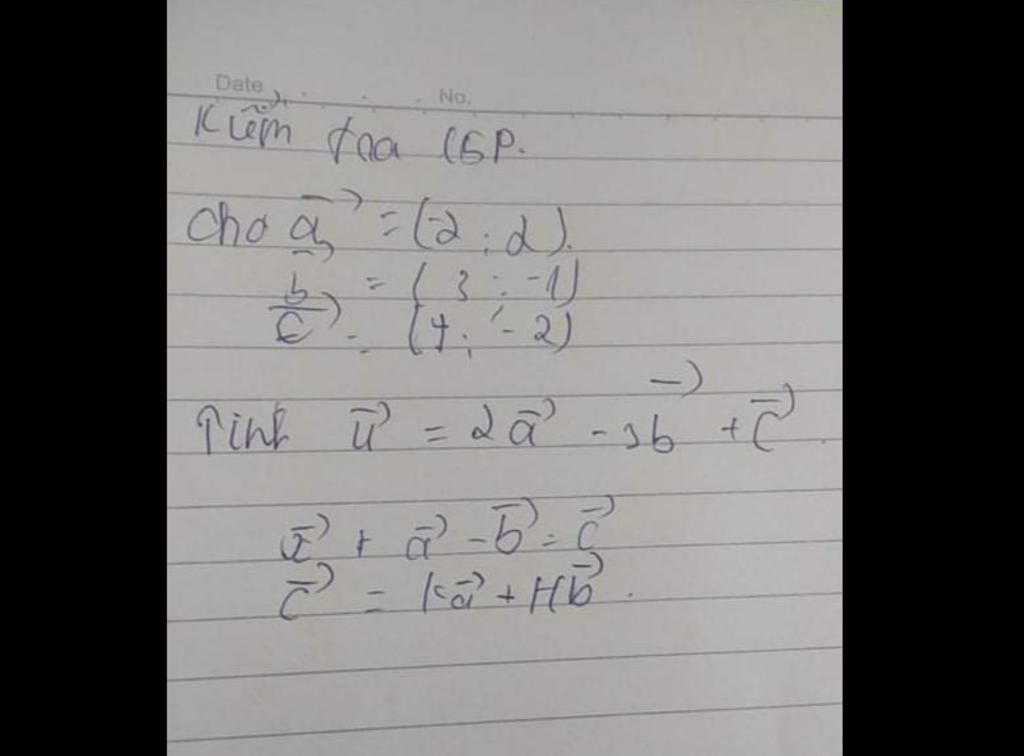 Date No.
Kiểm tra 15P.
Cho a⃗ = (-2 ; 2).
b⃗ = ( 3 ; -1)
c⃗ = (4 ; -2)
Tính u⃗ = 2a⃗ - 3b⃗ + c⃗.
x⃗ + a⃗ - b⃗ = c⃗
c⃗ = Ka⃗ + Hb⃗.